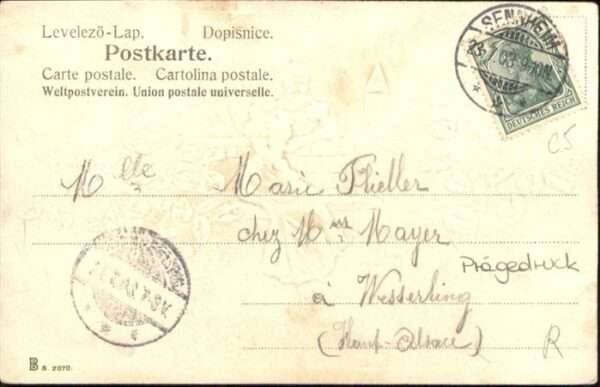 Levelező-Lap. Dopisnice.
Postkarte.
Carte postale. Cartolina postale.
Weltpostverein. Union postale universelle.
SENNHEIM
DEUTSCHES REICH
C5
Mlle Marie Flieller
chez Mme Mayer
Prägedruck
à Wesserling
(Haut-Alsace)
R
B S. 2070.